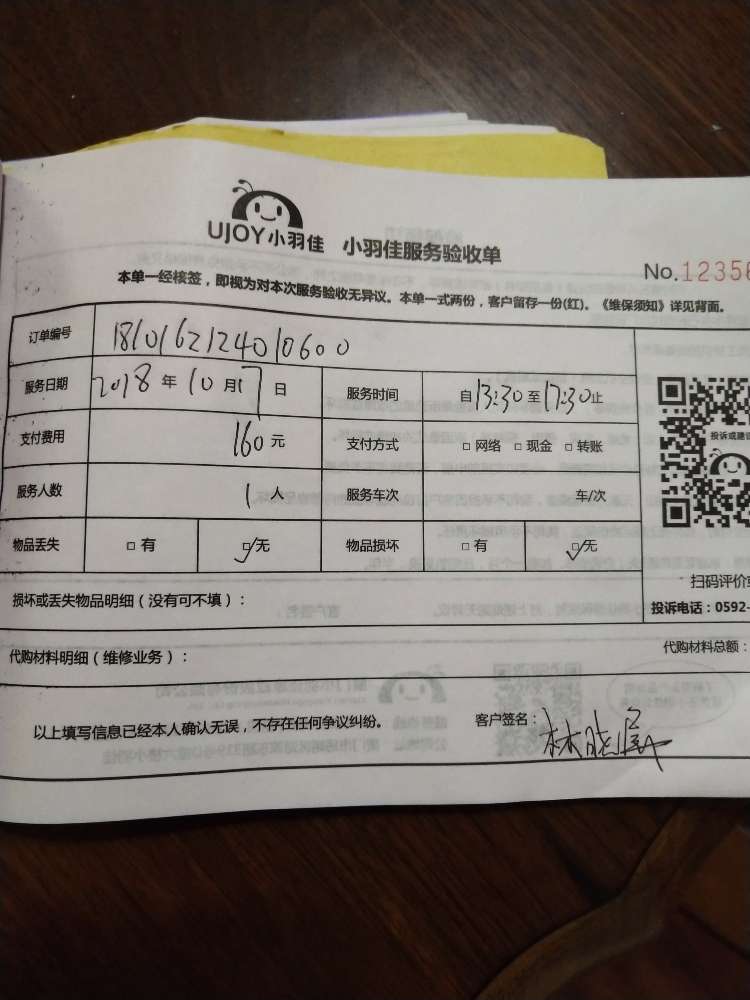 UJOY小羽佳 小羽佳服务验收单
No.12356
本单一经核签，即视为对本次服务验收无异议。本单一式两份，客户留存一份(红)。《维保须知》详见背面。
订单编号 1810162124010600
服务日期 2018 年 10 月 17 日 服务时间 自 13:30 至 17:30 止
支付费用 160 元 支付方式 □ 网络 □ 现金 □ 转账
投诉或建议
服务人数 1 人 服务车次 车/次
物品丢失 □ 有 ☑ 无 物品损坏 □ 有 ☑ 无
扫码评价或
损坏或丢失物品明细（没有可不填）：
投诉电话：0592-
代购材料明细（维修业务）： 代购材料总额：
以上填写信息已经本人确认无误，不存在任何争议纠纷。 客户签名： 林晓